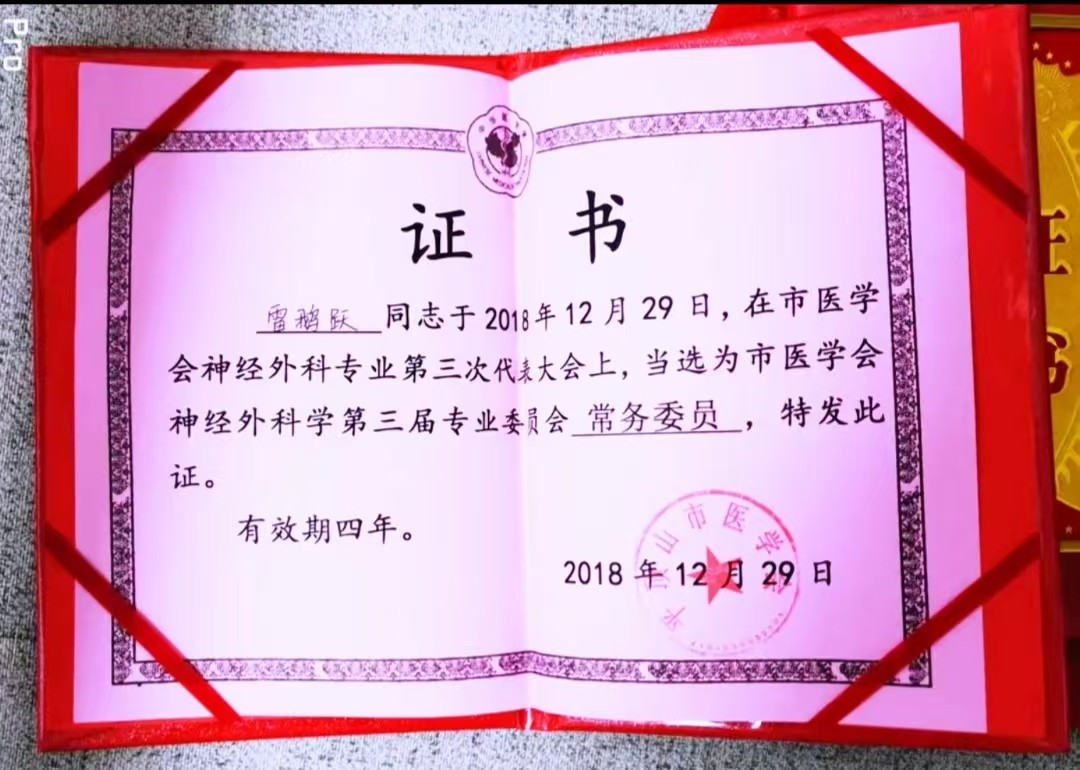 Pro
证 书
雷鹅跃 同志于2018年12月29日，在市医学
会神经外科专业第三次代表大会上，当选为市医学会
神经外科学第三届专业委员会 常务委员 ，特发此
证。
有效期四年。
平顶山市医学会
2018 年 12 月 29 日
证
书